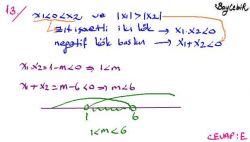 BayÇebir
13.) x₁<0<x₂ ve |x₁|>|x₂|
zıt işaretli iki kök → x₁.x₂<0
negatif kök baskın → x₁+x₂<0
x₁.x₂=1-m<0 ⇒ 1<m
x₁+x₂=m-6<0 ⇒ m<6
1 6
1<m<6
CEVAP: E